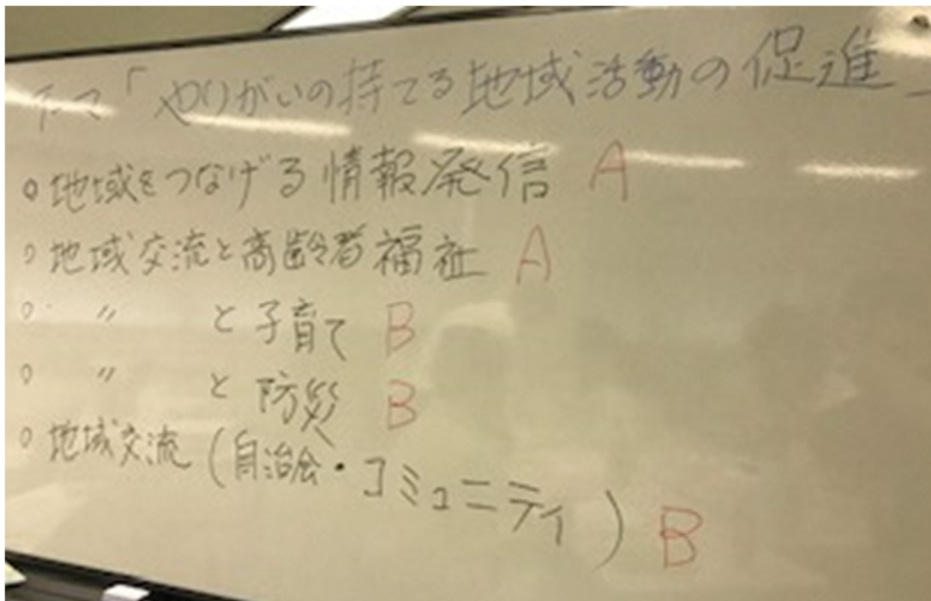 テーマ「やりがいの持てる地域活動の促進」
○地域をつなげる情報発信 A
○地域交流と高齢者福祉 A
○ 〃 と子育て B
○ 〃 と防災 B
○地域交流(自治会・コミュニティ) B